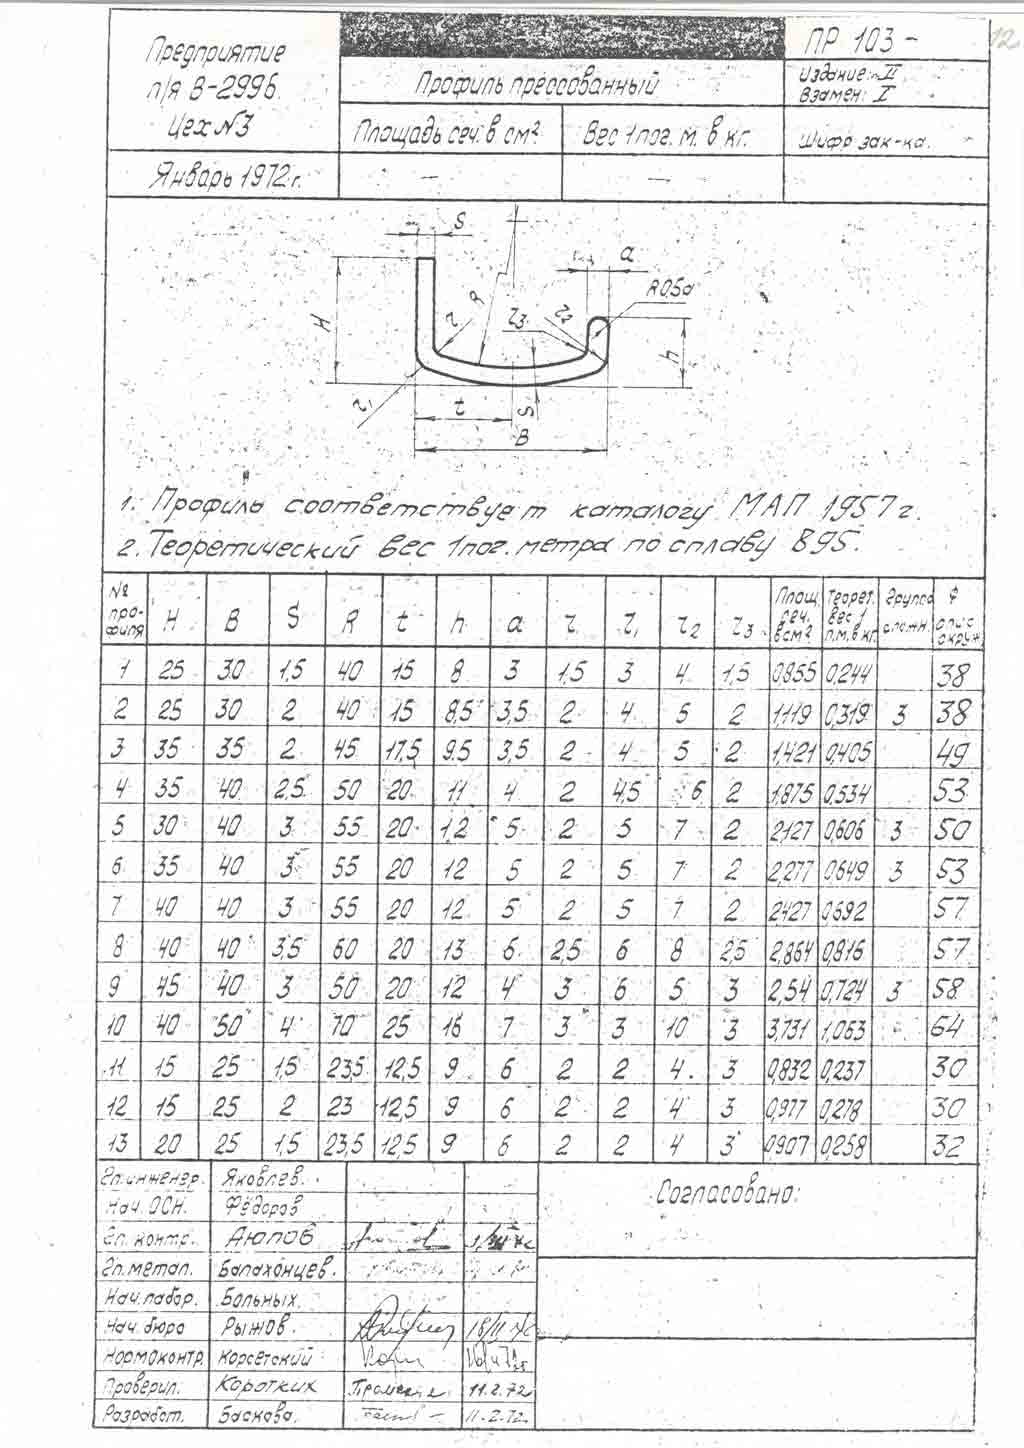 Предприятие
п/я В-2996.
Цех №3
Январь 1972 г.
Профиль прессованный
Площадь сеч. в см² Вес 1 пог. м. в кг.
— —
ПР 103 -
Издание: II
Взамен: I
Шифр зак-ка.
12
S
a
R 0,5a
H
R
r
r3
r2
h
r1
t
S
B
1. Профиль соответствует каталогу МАП 1957 г.
2. Теоретический вес 1 пог. метра по сплаву В95.
№ профиля H B S R t h a r r1 r2 r3 Площ. сеч. в см² Теорет. вес 1 п.м. в кг. Группа сложн. Ф опис. окруж.
1 25 30 1,5 40 15 8 3 1,5 3 4 1,5 0,855 0,244 38
2 25 30 2 40 15 8,5 3,5 2 4 5 2 1,119 0,319 3 38
3 35 35 2 45 17,5 9.5 3,5 2 4 5 2 1,421 0,405 49
4 35 40 2,5 50 20 11 4 2 4,5 6 2 1,875 0,534 53
5 30 40 3 55 20 12 5 2 5 7 2 2,127 0,606 3 50
6 35 40 3 55 20 12 5 2 5 7 2 2,277 0,649 3 53
7 40 40 3 55 20 12 5 2 5 7 2 2,427 0,692 57
8 40 40 3,5 60 20 13 6 2,5 6 8 2,5 2,864 0,816 57
9 45 40 3 50 20 12 4 3 6 5 3 2,54 0,724 3 58
10 40 50 4 70 25 16 7 3 3 10 3 3,731 1,063 64
11 15 25 1,5 23,5 12,5 9 6 2 2 4 3 0,832 0,237 30
12 15 25 2 23 12,5 9 6 2 2 4 3 0,977 0,278 30
13 20 25 1,5 23,5 12,5 9 6 2 2 4 3 0,907 0,258 32
Гл. инженер. Яковлев.
Нач. ОСН. Фёдоров
Гл. контр. Аюпов
Гл. метал. Балахонцев.
Нач. лабор. Больных.
Нач. бюро Рыжов.
Нормоконтр. Корсетский
Проверил. Коротких 11.2.72
Разработ. Баскова. 11.2.72.
Согласовано: